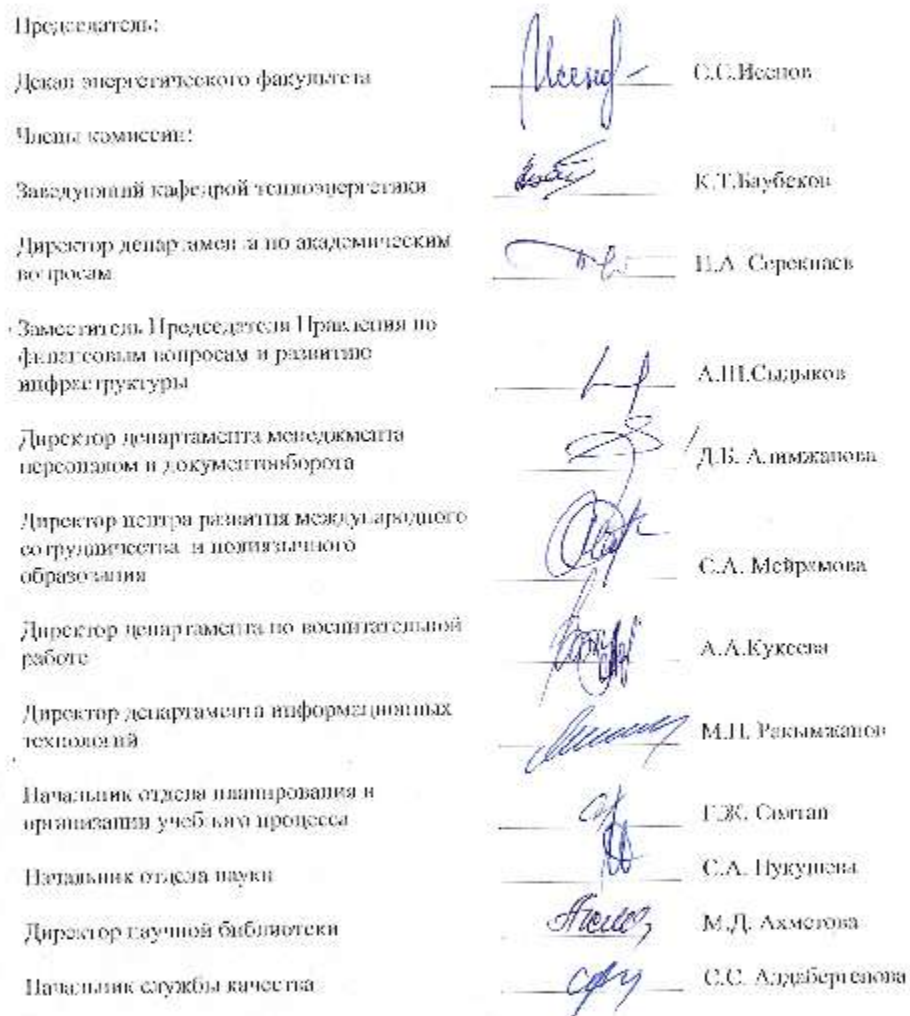 Председатель:
Декан энергетического факультета С.С.Исенов
Члены комиссии:
Заведующий кафедрой теплоэнергетики К.Т.Баубеков
Директор департамента по академическим
вопросам Н.А. Серекпаев
Заместитель Председателя Правления по
финансовым вопросам и развитию
инфраструктуры А.Ш.Сыдыков
Директор департамента менеджмента
персоналом и документооборота Д.Б. Алимжанова
Директор центра развития международного
сотрудничества и полиязычного
образования С.А. Мейрамова
Директор департамента по воспитательной
работе А.А.Кукеева
Директор департамента информационных
технологий Ракымжанов
Начальник отдела планирования и
организации учебного процесса Г.Ж.
Начальник отдела науки С.А. Нукушева
Директор научной библиотеки М.Д. Ахметова
Начальник службы качества С.С. Алдабергенова